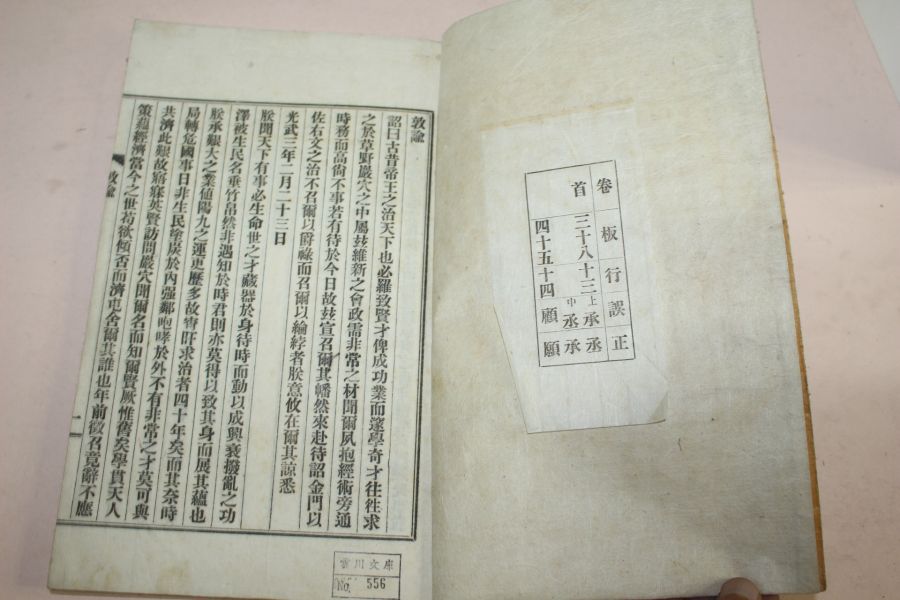 卷板行誤正
首三十八十三上承丞
中丞承
四十五十四顧願
敦諭
詔曰古昔帝王之治天下也必羅致賢才俾成功業而邃學奇才往往求
之於草野巖穴之中屬玆維新之會政需非常之材聞爾夙抱經術旁通
時務而高尙不事若有待於今日故玆宣召爾其幡然來赴待詔金門以
佐右文之治不召爾以爵祿而召爾以綸綍者朕意攸在爾其諒悉
光武三年二月二十三日
朕聞天下有事必生命世之才藏器於身待時而動以成興衰撥亂之功
澤被生民名垂竹帛然非遇知於時君則亦莫得以致其身而展其蘊也
朕承艱大之業値陽九之運吏歷多故宵旰求治者四十年矣而其奈時
局轉危國事日非生民塗炭於內强鄰咆哮於外不有非常之才莫可與
共濟此艱故寤寐英賢訪問巖穴聞爾名而知爾賢厥惟舊矣學貫天人
策蘊經濟當今之世苟欲傾否而濟屯舍爾其誰也年前徵召竟辭不應
敦諭 一
雲川文庫
No. 556